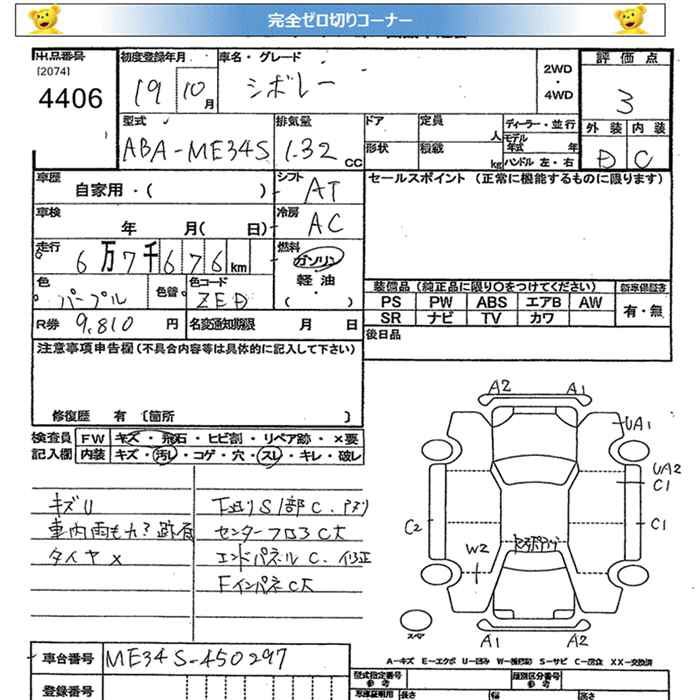 完全ゼロ切りコーナー
出品番号
[2074]
4406
初度登録年月
19 10 月
車名・グレード
シボレー
2WD
・
4WD
評価点
3
外装 内装
D C
型式
ABA-ME34S
排気量
1.32 cc
ドア
定員 人
ディーラー・並行
モデル年式 年
形状
積載 kg
ハンドル 左・右
車歴
自家用・( )
シフト
AT
セールスポイント (正常に機能するものに限ります)
車検
年 月( 日)
冷房
AC
走行
6万7千676km
燃料
ガソリン
軽油
( )
色
パープル
色替
色コード
ZED
装備品(純正品に限り○をつけてください)
新車保証書
PS PW ABS エアB AW
有・無
SR ナビ TV カワ
R券 9,810 円
名変通知期限 月 日
後日品
注意事項申告欄(不具合内容等は具体的に記入して下さい)
修復歴 有 〔箇所 〕
検査員
記入欄
FW キズ・飛石・ヒビ割・リペア跡・×要
内装 キズ・汚レ・コゲ・穴・スレ・キレ・破レ
キズU
車内雨もれ?跡有
タイヤ×
下廻りS1部C.
センターフロアC大
エンドパネルC.修正
FインパネC大
A2 A1
UA1
UA2
C1
C2
C1
W2
スペア
A1 A2
A-キズ E-エクボ U-凹み W-補修跡 S-サビ C-腐食 XX-交換済
車台番号
ME34S-450297
登録番号
型式指定番号
参考
類別区分番号
参考
車庫証明用
長さ
幅
高さ